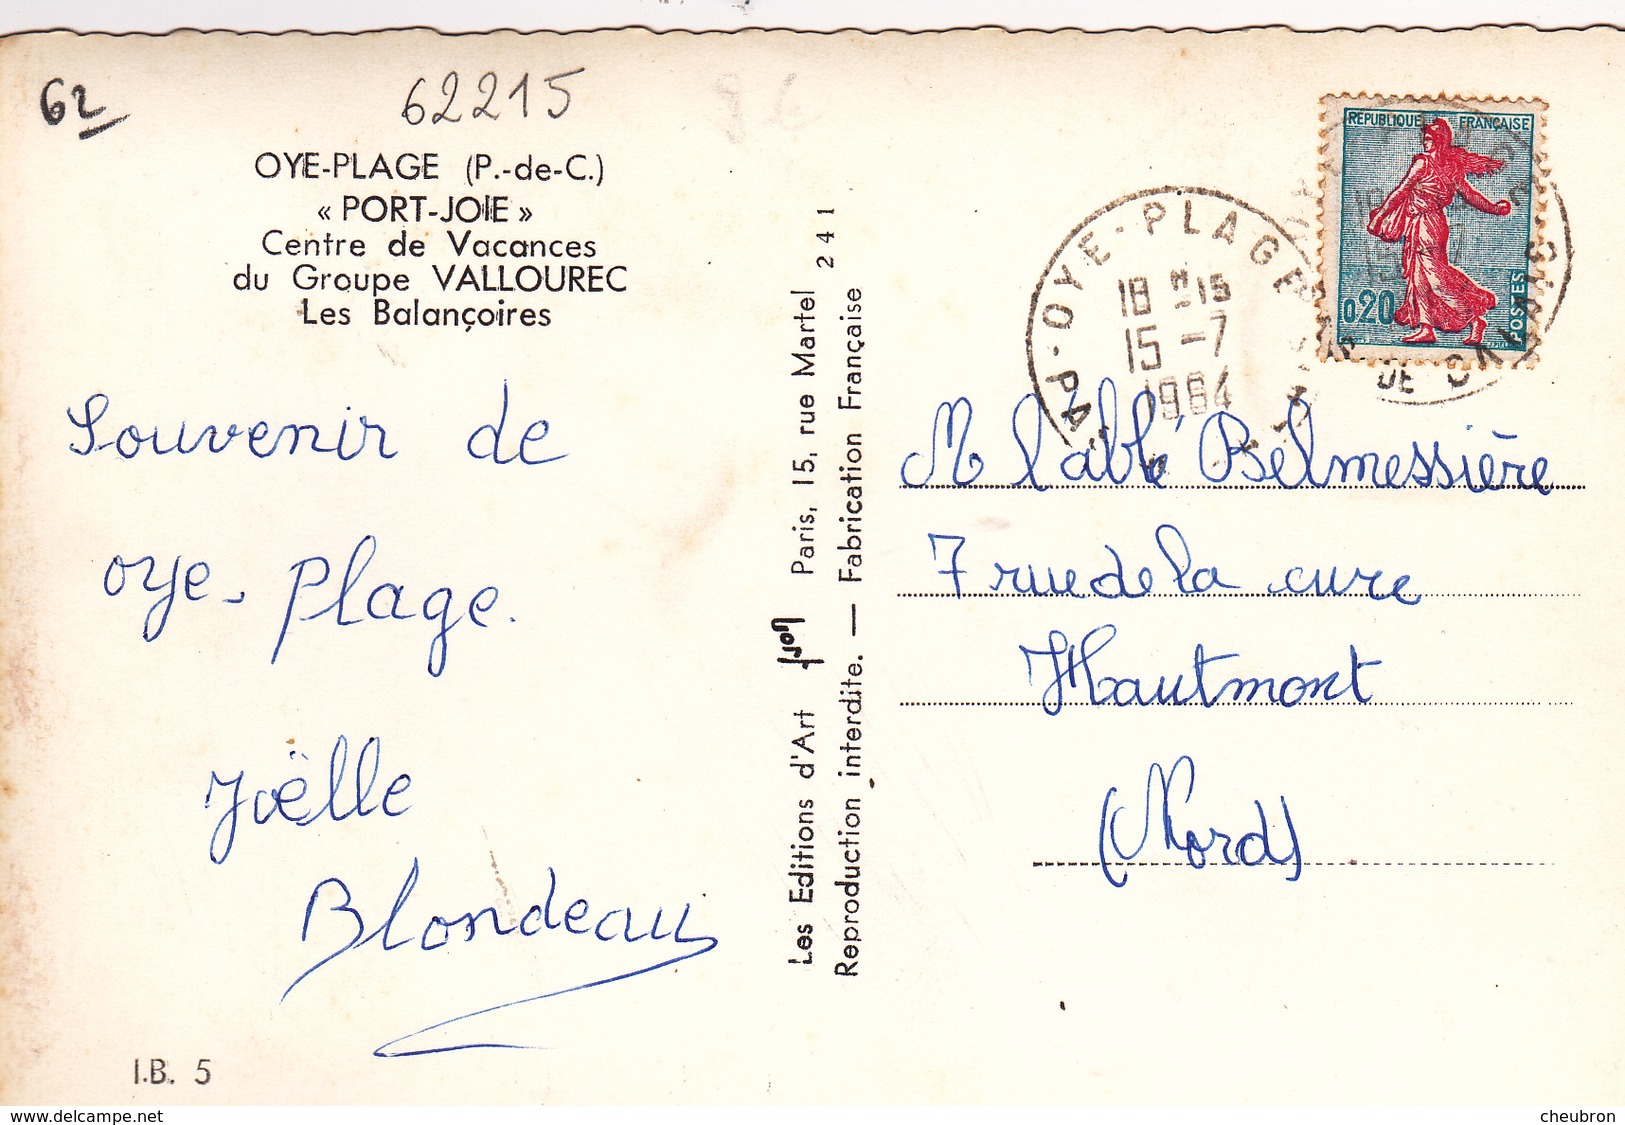 62
62215
OYE-PLAGE (P.-de-C.)
« PORT-JOIE »
Centre de Vacances
du Groupe VALLOUREC
Les Balançoires
Souvenir de
oye-Plage.
Joëlle
Blondeau
I.B. 5
Les Editions d'Art yvon Paris, 15, rue Martel 241
Reproduction interdite. — Fabrication Française
OYE-PLAGE
PAS DE CALAIS
18 H -15
15 -7
1964
REPUBLIQUE FRANÇAISE
0,20
POSTES
M l'abbé Belmessière
7 rue de la cure
Hautmont
(Nord)
www.delcampe.net
cheubron